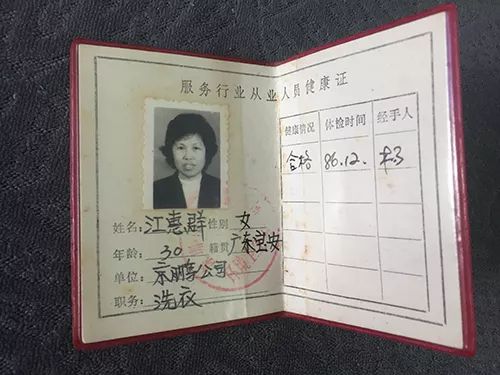 服务行业从业人员健康证
姓名: 江惠群 性别 女
年龄: 30 籍贯 广东宝安
单位: 京鹏公司
职务: 洗衣
健康情况 体检时间 经手人
合格 86.12.